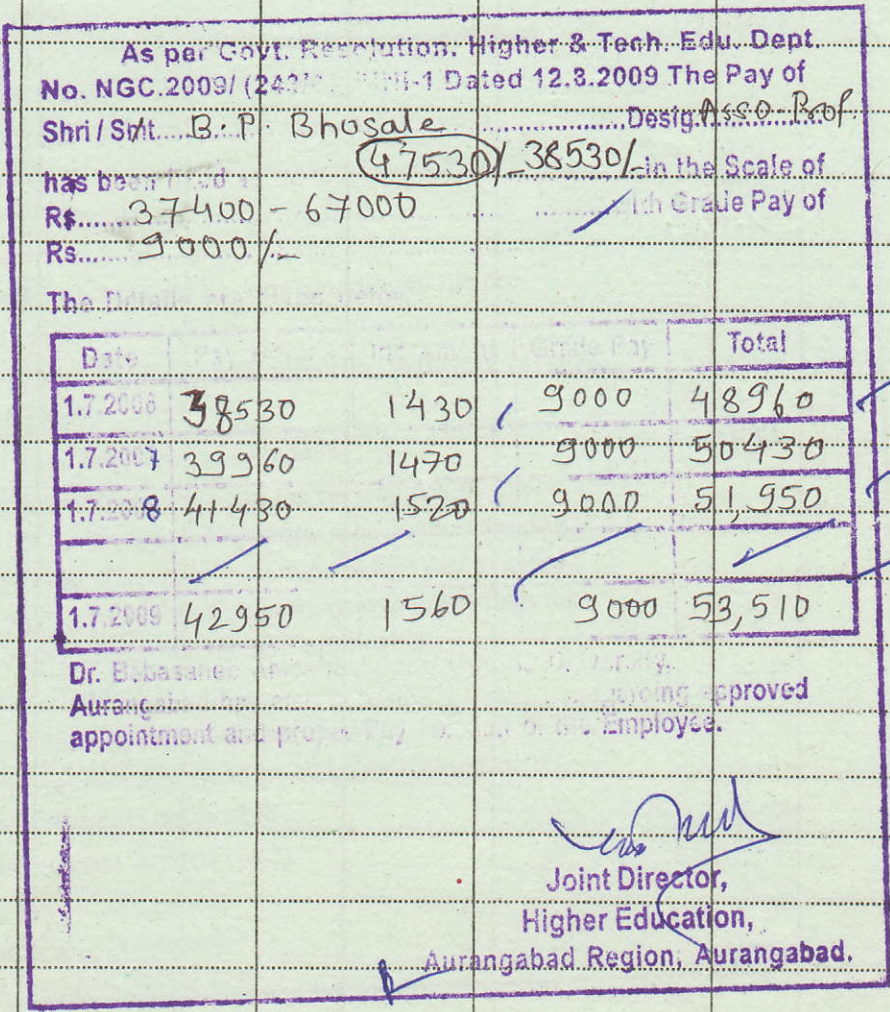 As per Govt. Resolution, Higher & Tech. Edu. Dept.
No. NGC.2009/ (243/ -1 Dated 12.8.2009 The Pay of
Shri / Smt. B. P. Bhosale Desig. Asso. Prof
has been 47530/- 38530/- in the Scale of
Rs. 37400 - 67000 Grade Pay of
Rs. 9000/-
The Details are
Date Pay Grade Pay Total
1.7.2006 38530 1430 9000 48960
1.7.2007 39960 1470 9000 50430
1.7.2008 41430 1520 9000 51,950
1.7.2009 42950 1560 9000 53,510
Dr. Babasaheb University,
Aurangabad approved
appointment and Pay of the Employee.
Joint Director,
Higher Education,
Aurangabad Region, Aurangabad.